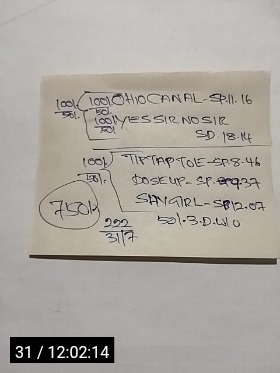 100/- 100/- OHIO CANAL - SP.11.16
50/- 50/-
100/- YES SIR NO SIR
50/- SD. 18.14
100/- TIPTAP TOE - SP.8-46
50/- DOSEUP - SP. 37
SHYGIRL - SP12.07
750/- 222 50/- 3.D.W/O
31/7
31 / 12:02:14